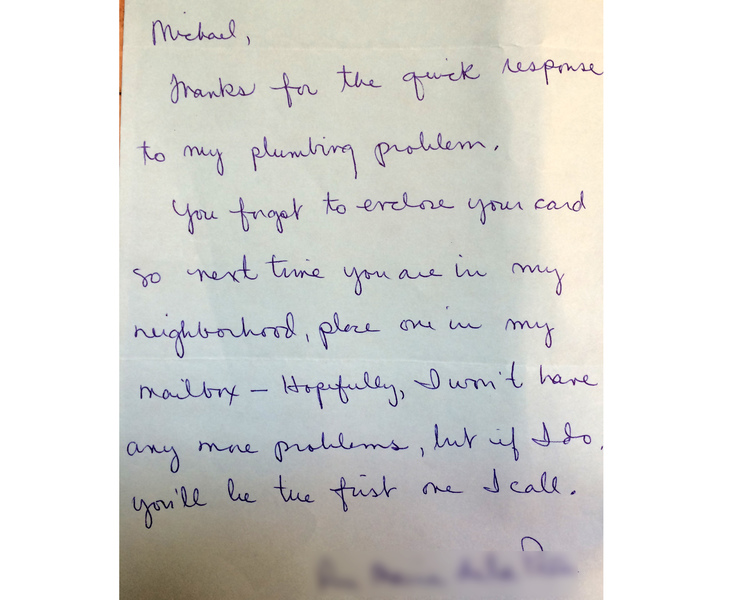 Michael,
Thanks for the quick response
to my plumbing problem.
You forgot to enclose your card
so next time you are in my
neighborhood, place one in my
mailbox – Hopefully, I won't have
any more problems, but if I do,
you'll be the first one I call.